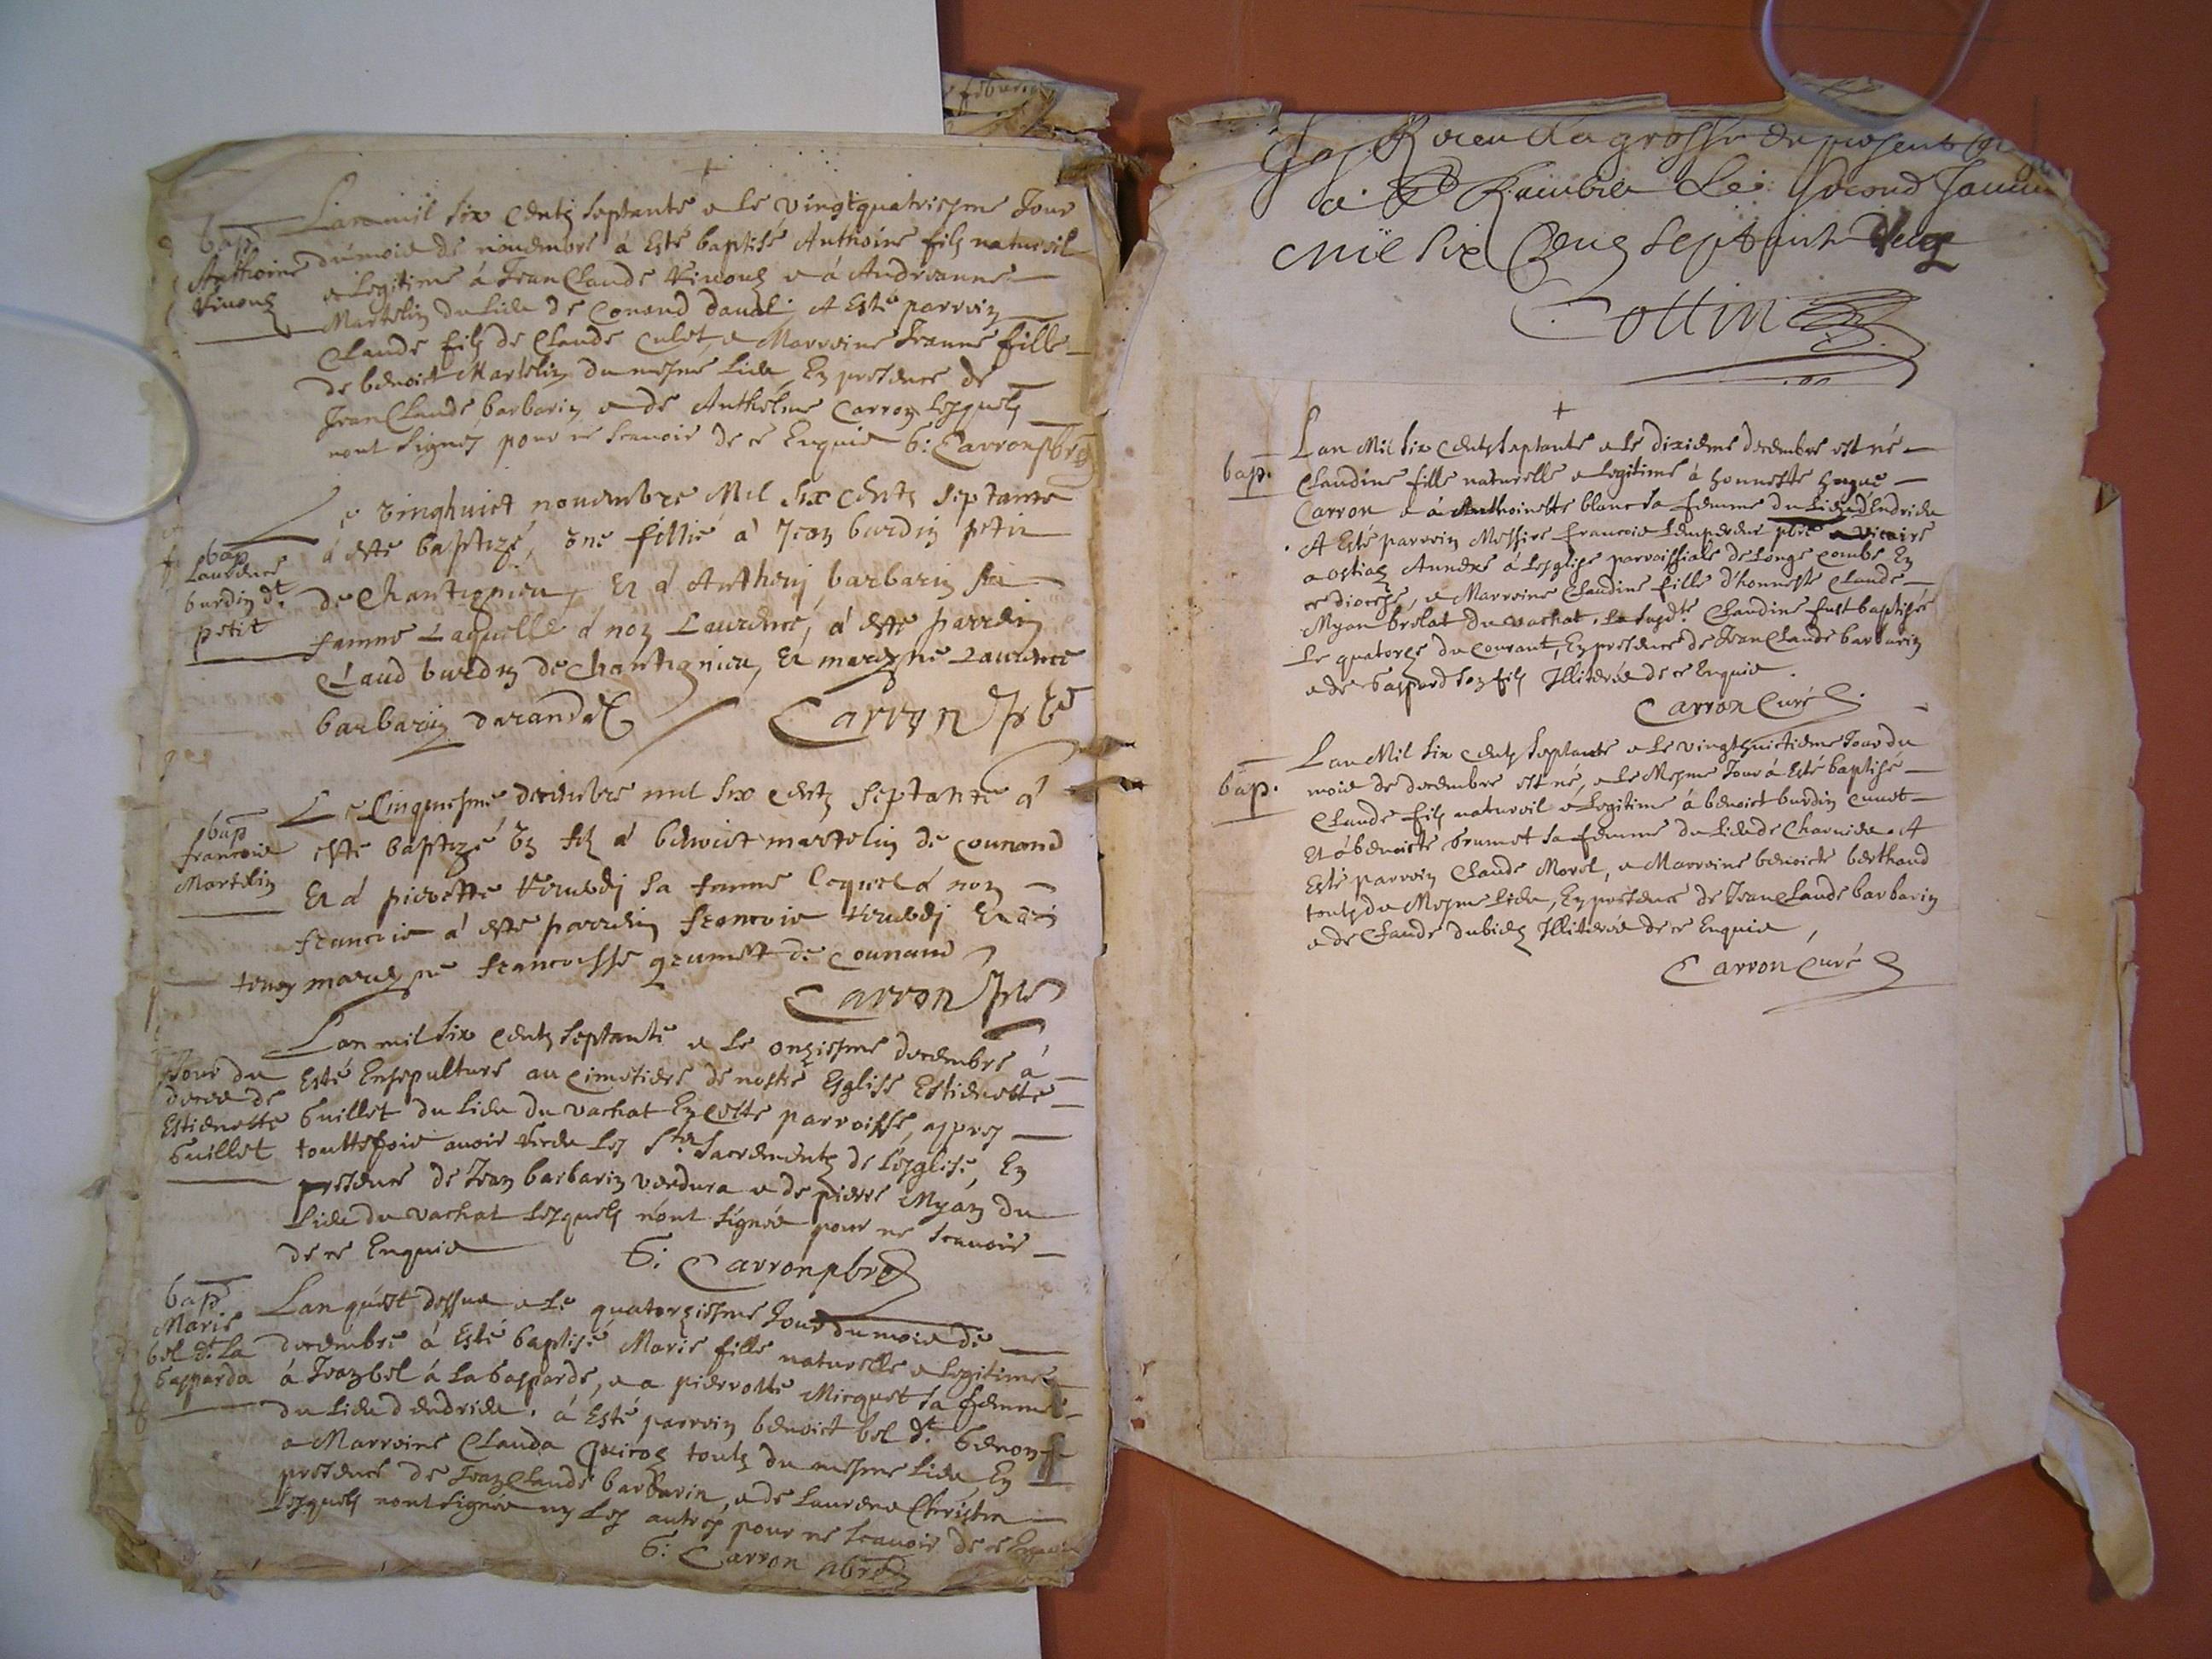 +
Lan mil six centz septante e le vingtquatriesme Jour
bap
Anthoine
dumois de novembre à Esté baptisé Anthoine filz naturel
e Legitime à Jean Claude e à Andréanne
Martelin du Lieu de Conand A Esté parrein
Claude filz de Claude Culet, e Marreine Jeanne fille
de benoict Martelin du mesme Lieu, En présence de
Jean Claude barbarin e de Anthelme Carron Lesquelz
nont Signez pour ne scavoir de ce Enquis G: Carron pbre
Le vinghuict novembre Mil Six Centz Septante
bap
Laurence
burdin dt
petit
á esté baptizé, une fillie à Jean burdin petit
de Chantignieu, Et á Antheny barbarin sa
famme Laquelle á nom Laurence, á esté parrein
Claud burdin de Chantignieu, Et mareyne Laurence
barbarin daranda
Carron pbre
Le Cinquiesme decembre mil six centz septante á
bap
francois
Martelin
esté baptizé un filz á benoict martelin de Counand
Et á pierette sa famme lequel á nom
francois á esté parrein francois Et
mareyne francoisse grumet de Counand
Carron pbre
Lan mil six Centz septante e le onziesme decembre à
Jour du
deces de
Estienette
Guillet
Esté Ensepulturé au Cimetiere de nostre Esglise Estienette
Guillet du Lieu du vachat En Cette parroisse, appres
touttefois avoir les Sts Sacrementz de Lesglise, En
presence de Jean barbarin verdura e de pierre Myan du
Lieu du vachat Lesquelz n'ont signés pour ne scavoir
de ce Enquis G: Carron pbre
bap
Marie
bel dt La
Gasparda
Lan qu'est dessus e le quatorziesme Jour du mois de
decembre à Esté baptisé Marie fille naturelle e Legitime
à Jean bel à la Gasparde, e a pierrotte Micquet sa femme
du Lieu dendrieu. á Esté parrein benoict bel dt Genon
e Marreine Clauda toutz du mesme Lieu, En
presence de Jean Claude barbarin, e de Laurens Christin
Lesquelz nont signés ny les autres pour ne scavoir de ce Enquis
G: Carron pbre
la grosse du present
à St Rambert Le second Janvier
mil six Cens septante deux
Cottin
+
Lan Mil six Centz septante e le dixieme decembre est né
bap.
Claudine fille naturelle e Legitime à honneste hugue
Carron e á Anthoinette blanc sa femme du Lieu d'Endrieu
A Esté parrein Messire francois Lempereur pbre e vicaire
a ostiaz Annexe á Lesglise parroissiale de Longecombe En
ce diocese, e Marreine Claudine fille d'honneste Claude
Myan brolat du vachat. La susdte Claudine fust baptisée
Le quatorze du courant, En presence de Jean Claude barbarin
e de Gaspard son filz Illiterés de ce Enquis.
Carron Curé
Lan Mil six Centz septante e le vingthuictieme Jour du
bap.
mois de decembre est né, e le Mesme Jour á Esté baptisé
Claude filz naturel e Legitime à benoict burdin cunet
Et á benoicte Grumet sa femme du Lieu de Charvieu. A
Esté parrein Claude Morel, e Marreine benoicte berthaud
toutz du Mesme Lieu, En presence de Jean Claude barbarin
e de Claude dubiez Illiterés de ce Enquis,
Carron Curé